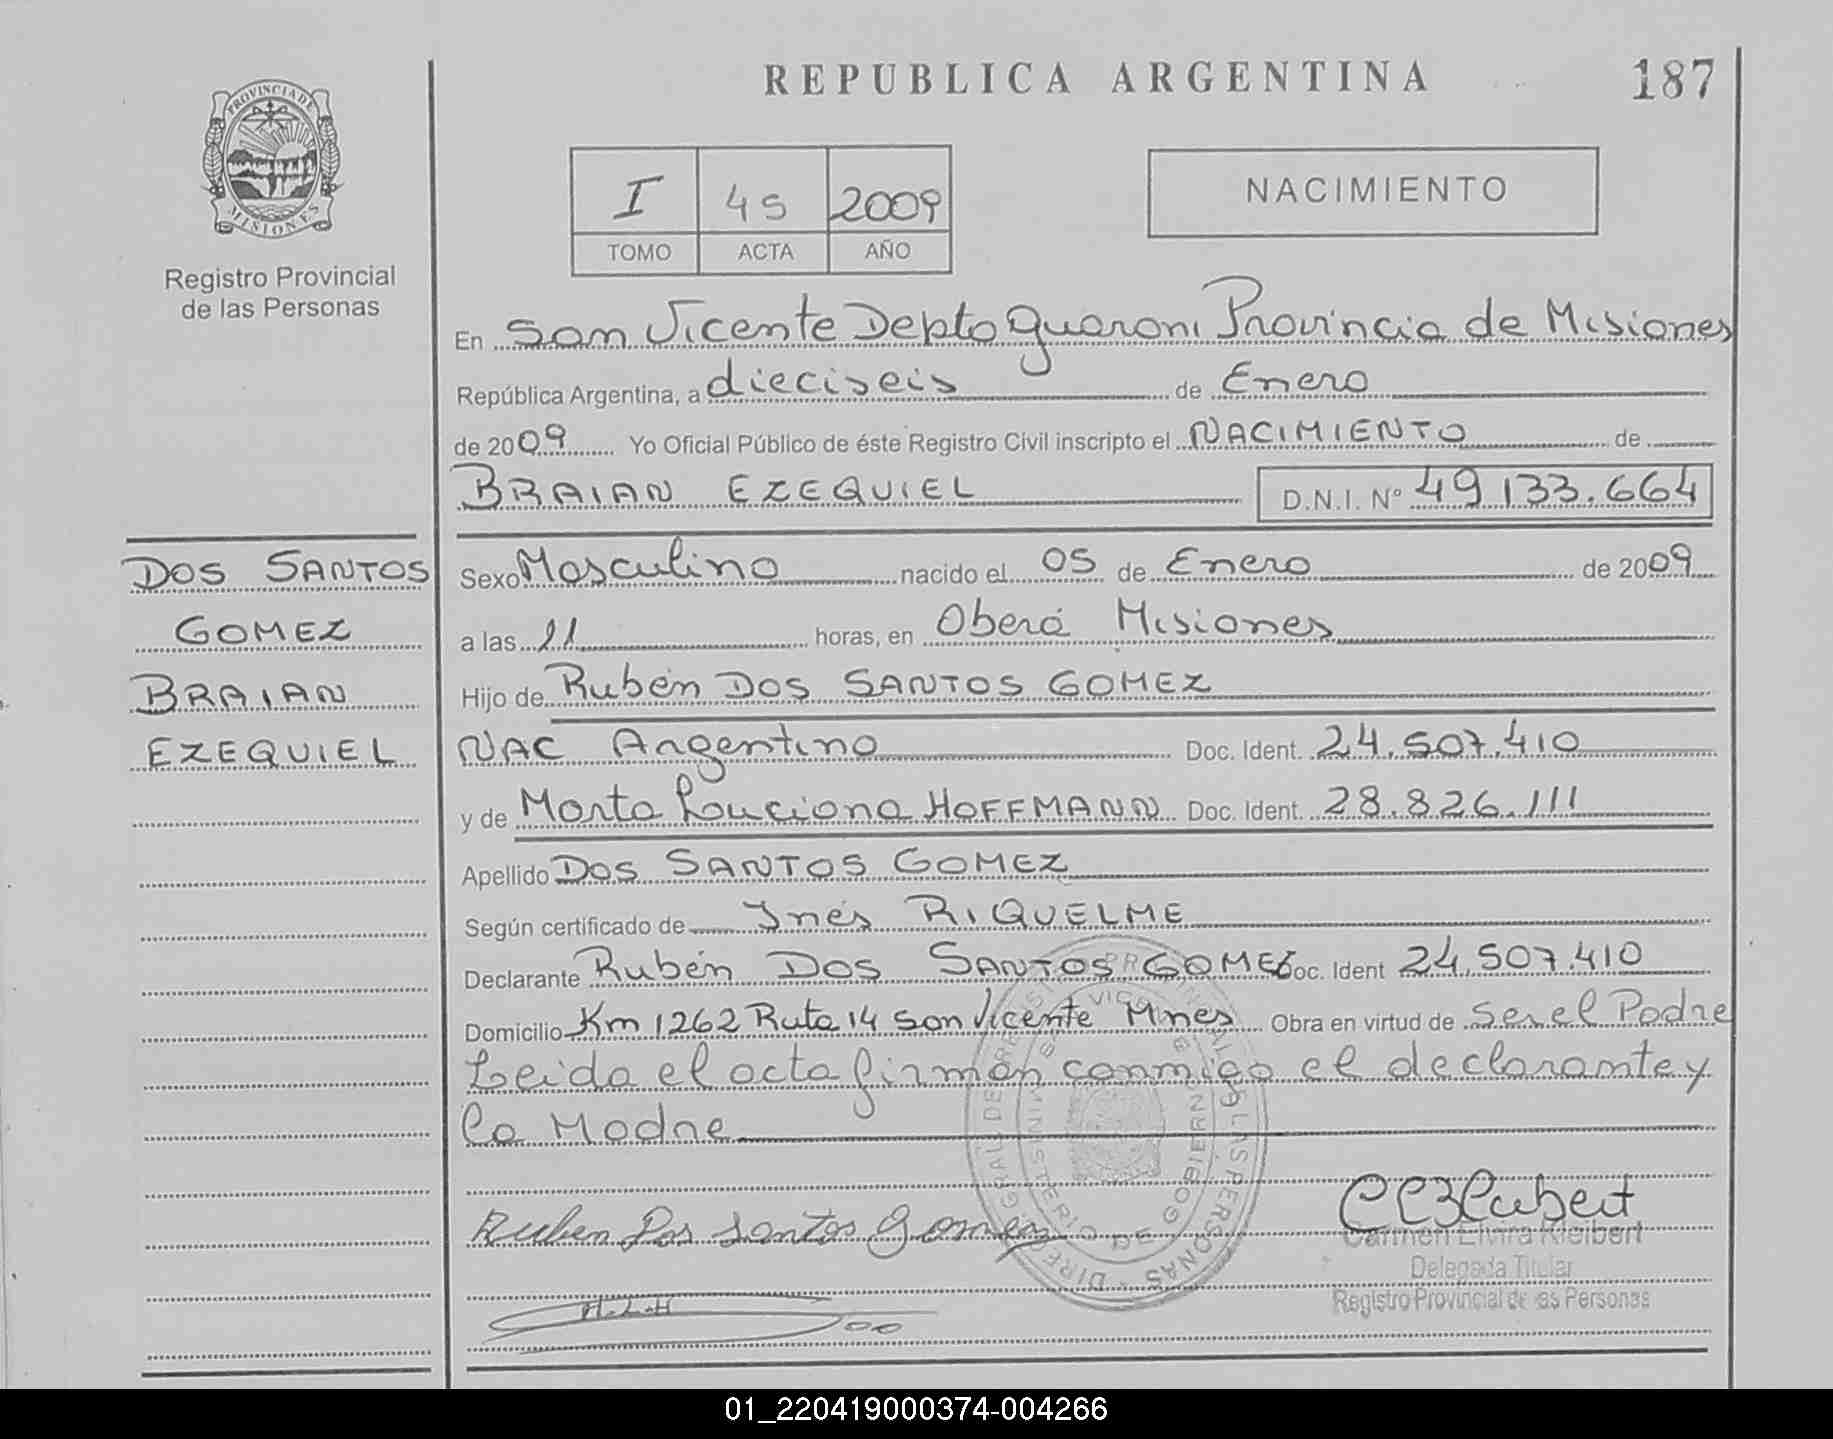 REPUBLICA ARGENTINA
187
PROVINCIA DE
MISIONES
Registro Provincial
de las Personas
I 45 2009
TOMO ACTA AÑO
NACIMIENTO
En San Vicente Depto Guarani Provincia de Misiones
República Argentina, a dieciseis de Enero
de 2009 Yo Oficial Público de éste Registro Civil inscripto el NACIMIENTO de
BRAIAN EZEQUIEL D.N.I. N° 49.133.664
DOS SANTOS
GOMEZ
BRAIAN
EZEQUIEL
Sexo Masculino nacido el 05 de Enero de 2009
a las 11 horas, en Oberá Misiones
Hijo de Rubén DOS SANTOS GOMEZ
NAC Argentino Doc. Ident. 24.507.410
y de Marta Luciana HOFFMANN Doc. Ident. 28.826.111
Apellido DOS SANTOS GOMEZ
Según certificado de Inés RIQUELME
Declarante Rubén DOS SANTOS GOMEZ Doc. Ident 24.507.410
Domicilio Km 1262 Ruta 14 San Vicente Mnes Obra en virtud de Ser el Padre
Leida el acta firman conmigo el declarante y
la Madre
Ruben Dos Santos Gomez
Carmen Elvira Kleibert
Delegada Titular
Registro Provincial de las Personas
MINISTERIO DE GOBIERNO
01_220419000374-004266